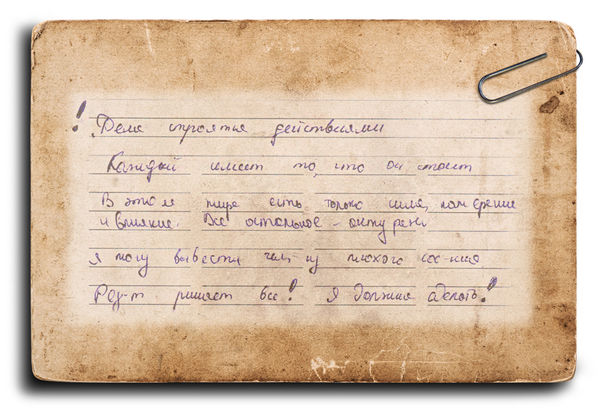 ! Дела строятся действиями
Каждый имеет то, что он стоит
В этом мире есть только сила, намерение
и влияние. Все остальное - антураж
я могу вывести чел. из плохого сос-ния
Рез-т решает все! Я должна сделать!